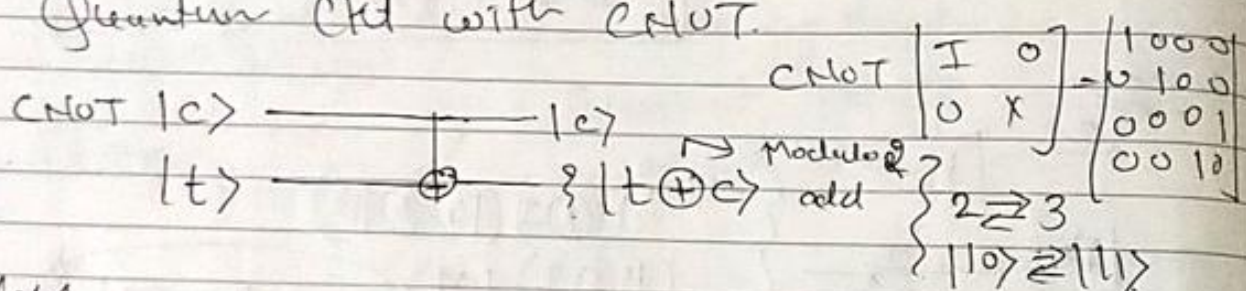 Quantum Ckt with CNOT.
CNOT [I 0 = [1 0 0 0
0 X] 0 1 0 0
0 0 0 1
0 0 1 0]
CNOT |c> |c>
|t> } |t⊕c> Modulo 2
add
2⇄3
|10>⇄|11>